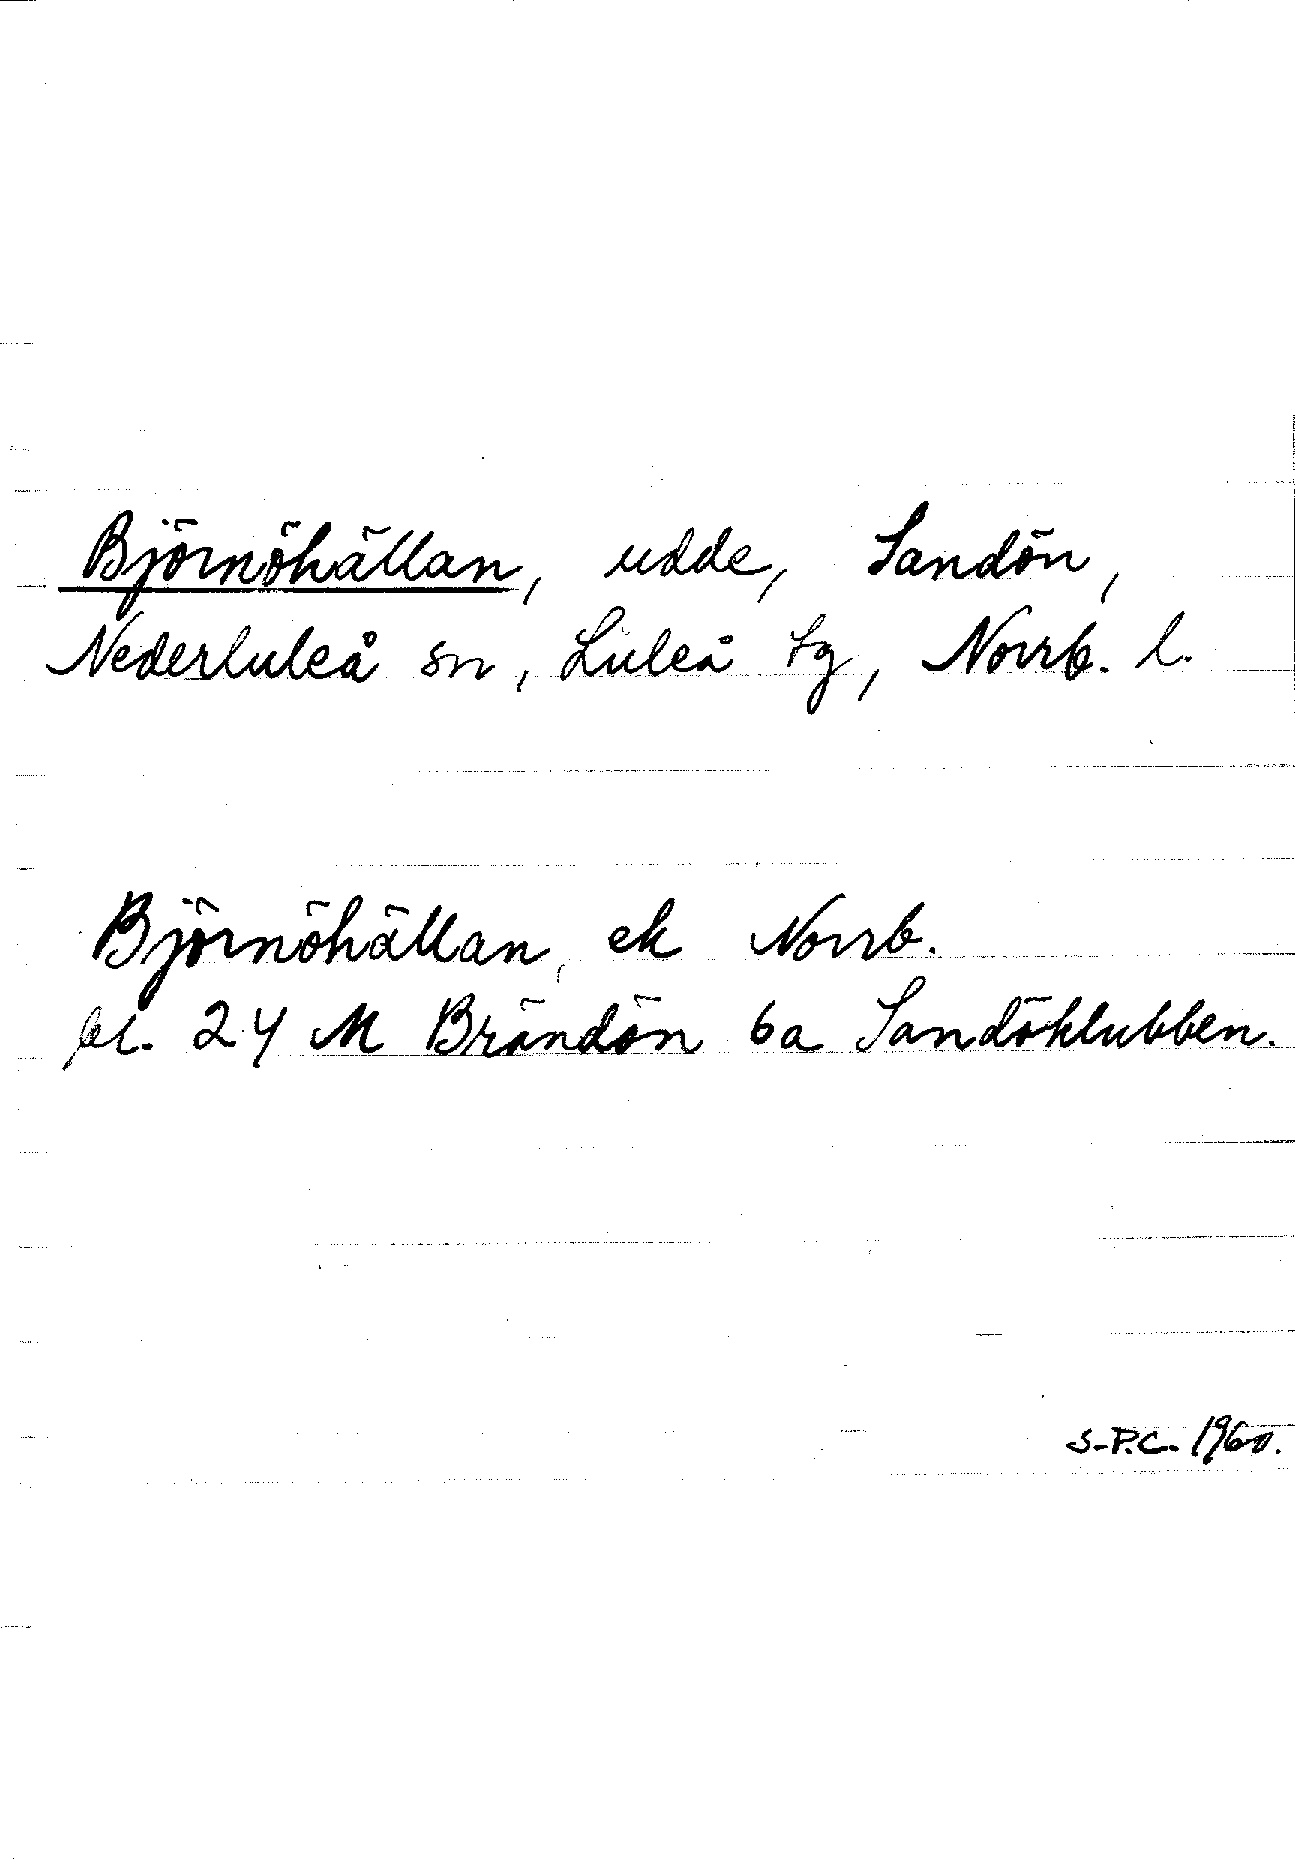 Björnöhällan, udde, Sandön,
Nederluleå sn, Luleå tg, Norrb. l.
Björnöhällan, ek Norrb.
bl. 24 M Brändön 6a Sandöklubben.
S-P.C. 1960.